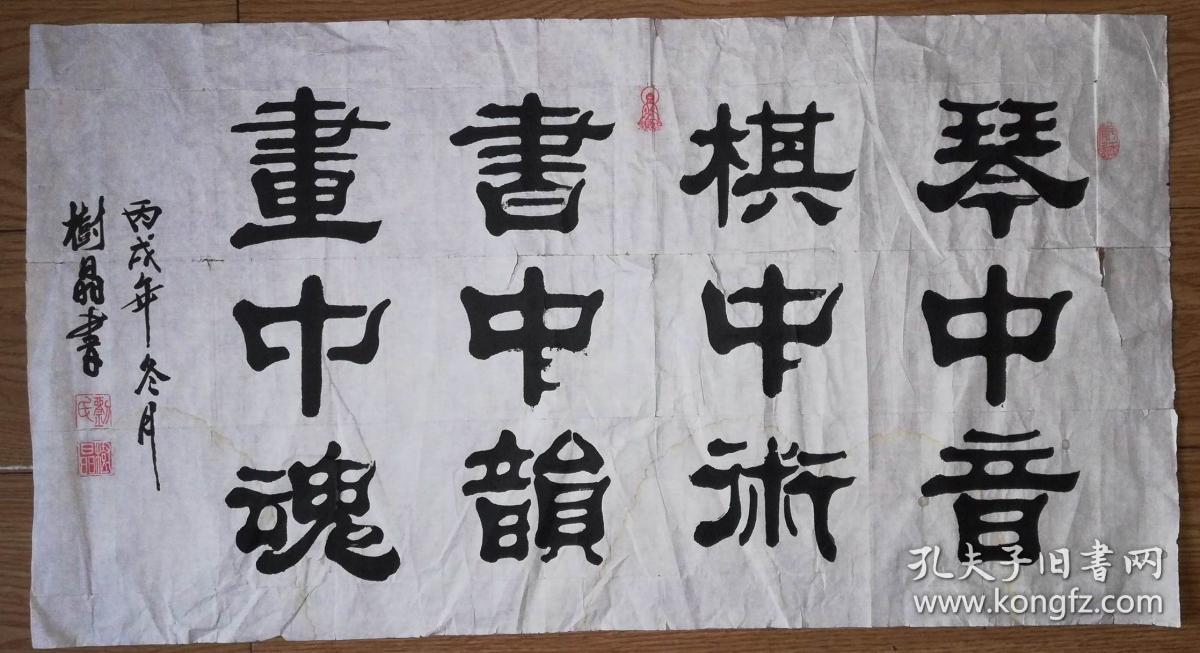 琴中音
棋中术
書中韻
畫中魂
丙戌年冬月
樹晶書
孔夫子旧書网
www.kongfz.com